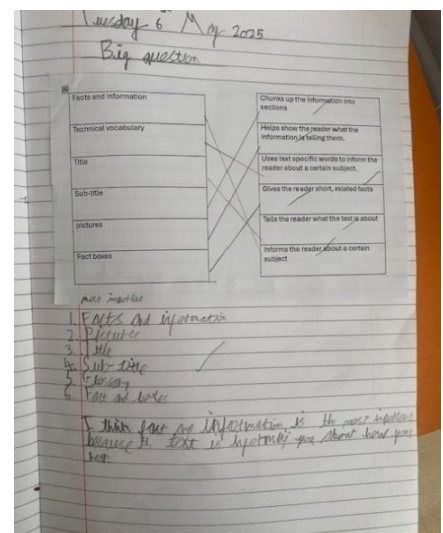 Tuesday 6 May 2025
Big question
Facts and information
Technical vocabulary
Title
Sub-title
pictures
Fact boxes
Chunks up the information into
sections
Helps show the reader what the
information is telling them.
Uses text specific words to inform the
reader about a certain subject.
Gives the reader short, related facts
Tells the reader what the text is about
Informs the reader about a certain
subject
most important
1. Facts and information
2. Pictures
3. Title
4. Sub-title
5. Glossary
6. Fact boxes
I think fact and information is the most important
because the text is informing you about how you